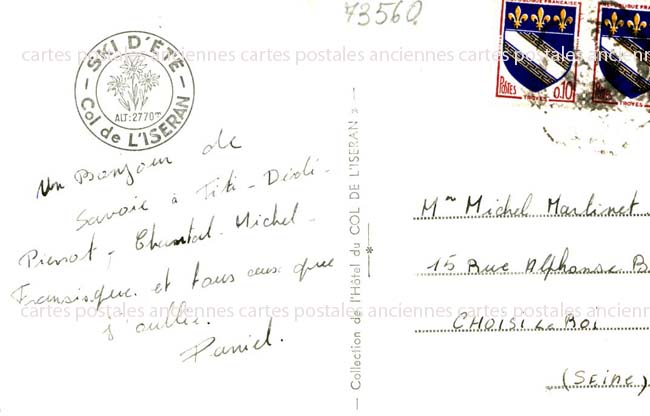 73560
SKI D'ÉTÉ
ALT: 2770m
Col de L'ISERAN
RÉPUBLIQUE FRANÇAISE
POSTES 0.10
TROYES
RÉPUBLIQUE FRANÇAISE
POSTES
TROYES
cartes postales anciennes cartes postales anciennes cartes postales anciennes
Un Bonjour de
Savoie à Titi - Dédi -
Pierrot - Chantal - Michel -
Fransisque et tous ceux que
j'oublie.
Daniel.
Collection de l'Hôtel du COL DE L'ISERAN
Mr Michel Martinet
15 Rue Alphonse B
CHOISI LE ROI
(SEINE)
cartes postales anciennes cartes postales anciennes cartes postales anciennes